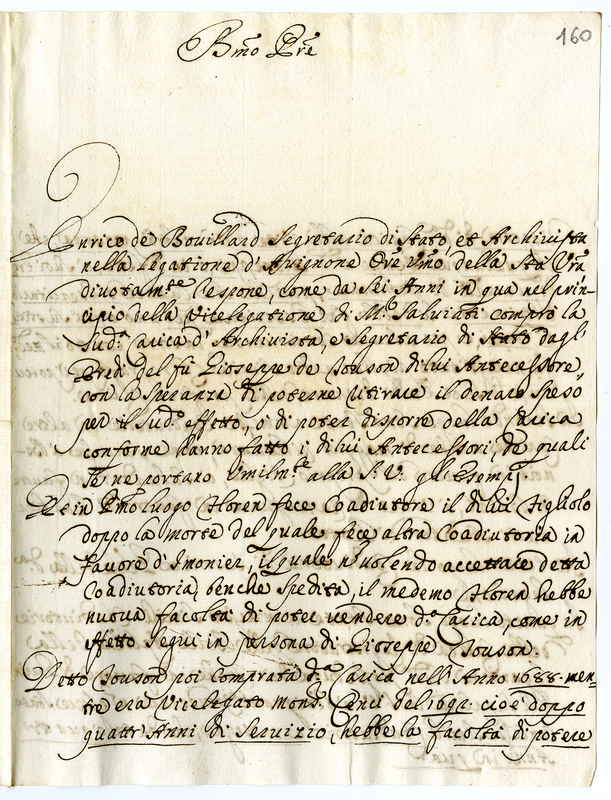 160
B.mo P.re
Enrico de Bouillard Segretario di Stato, et Archivista
nella Legatione d'Avignone Ore Vmo della Stà Vrã
divotam.te l'espone, come da Sei Anni in qua nel prin-
cipio della Vicelegatione di M.r Salviati comprò la
Sud.a Carica d'Archivista, e Segretario di Stato dagl'
Eredi del fù Gioseppe de Jouson di lui Antecessore,
con la Speranza di poterne ritirare il denaro speso
per il Sud.o effetto, ò di poter disporre della Carica
conforme hanno fatto i di lui Antecessori, de quali
Se ne portano Vmilm.te alla S. V. gl'Esempj.
Et in P.mo luogo Floren fece Coadiutore il di lui Figliolo
doppo la morte del quale fece altra Coadiutoria in
favore d'Imonier, il quale nõ volendo accettare detta
Coadiutoria, benche Spedita, il medemo Floren hebbe
nuova facoltà di poter vendere d.a Carica, come in
effetto Seguì in persona di Gioseppe Jouson.
Detto Jouson poi comprata d.a Carica nell'Anno 1688. men-
tre era Vicelegato mons.r Cenci del 1692. cioè doppo
quattr'Anni di Servizio, hebbe la facoltà di potere